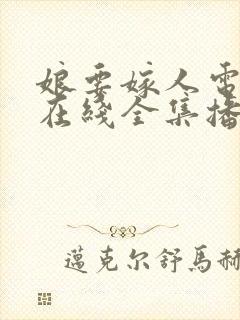 娘要嫁人電
在綫全集播
邁克尔舒馬赫